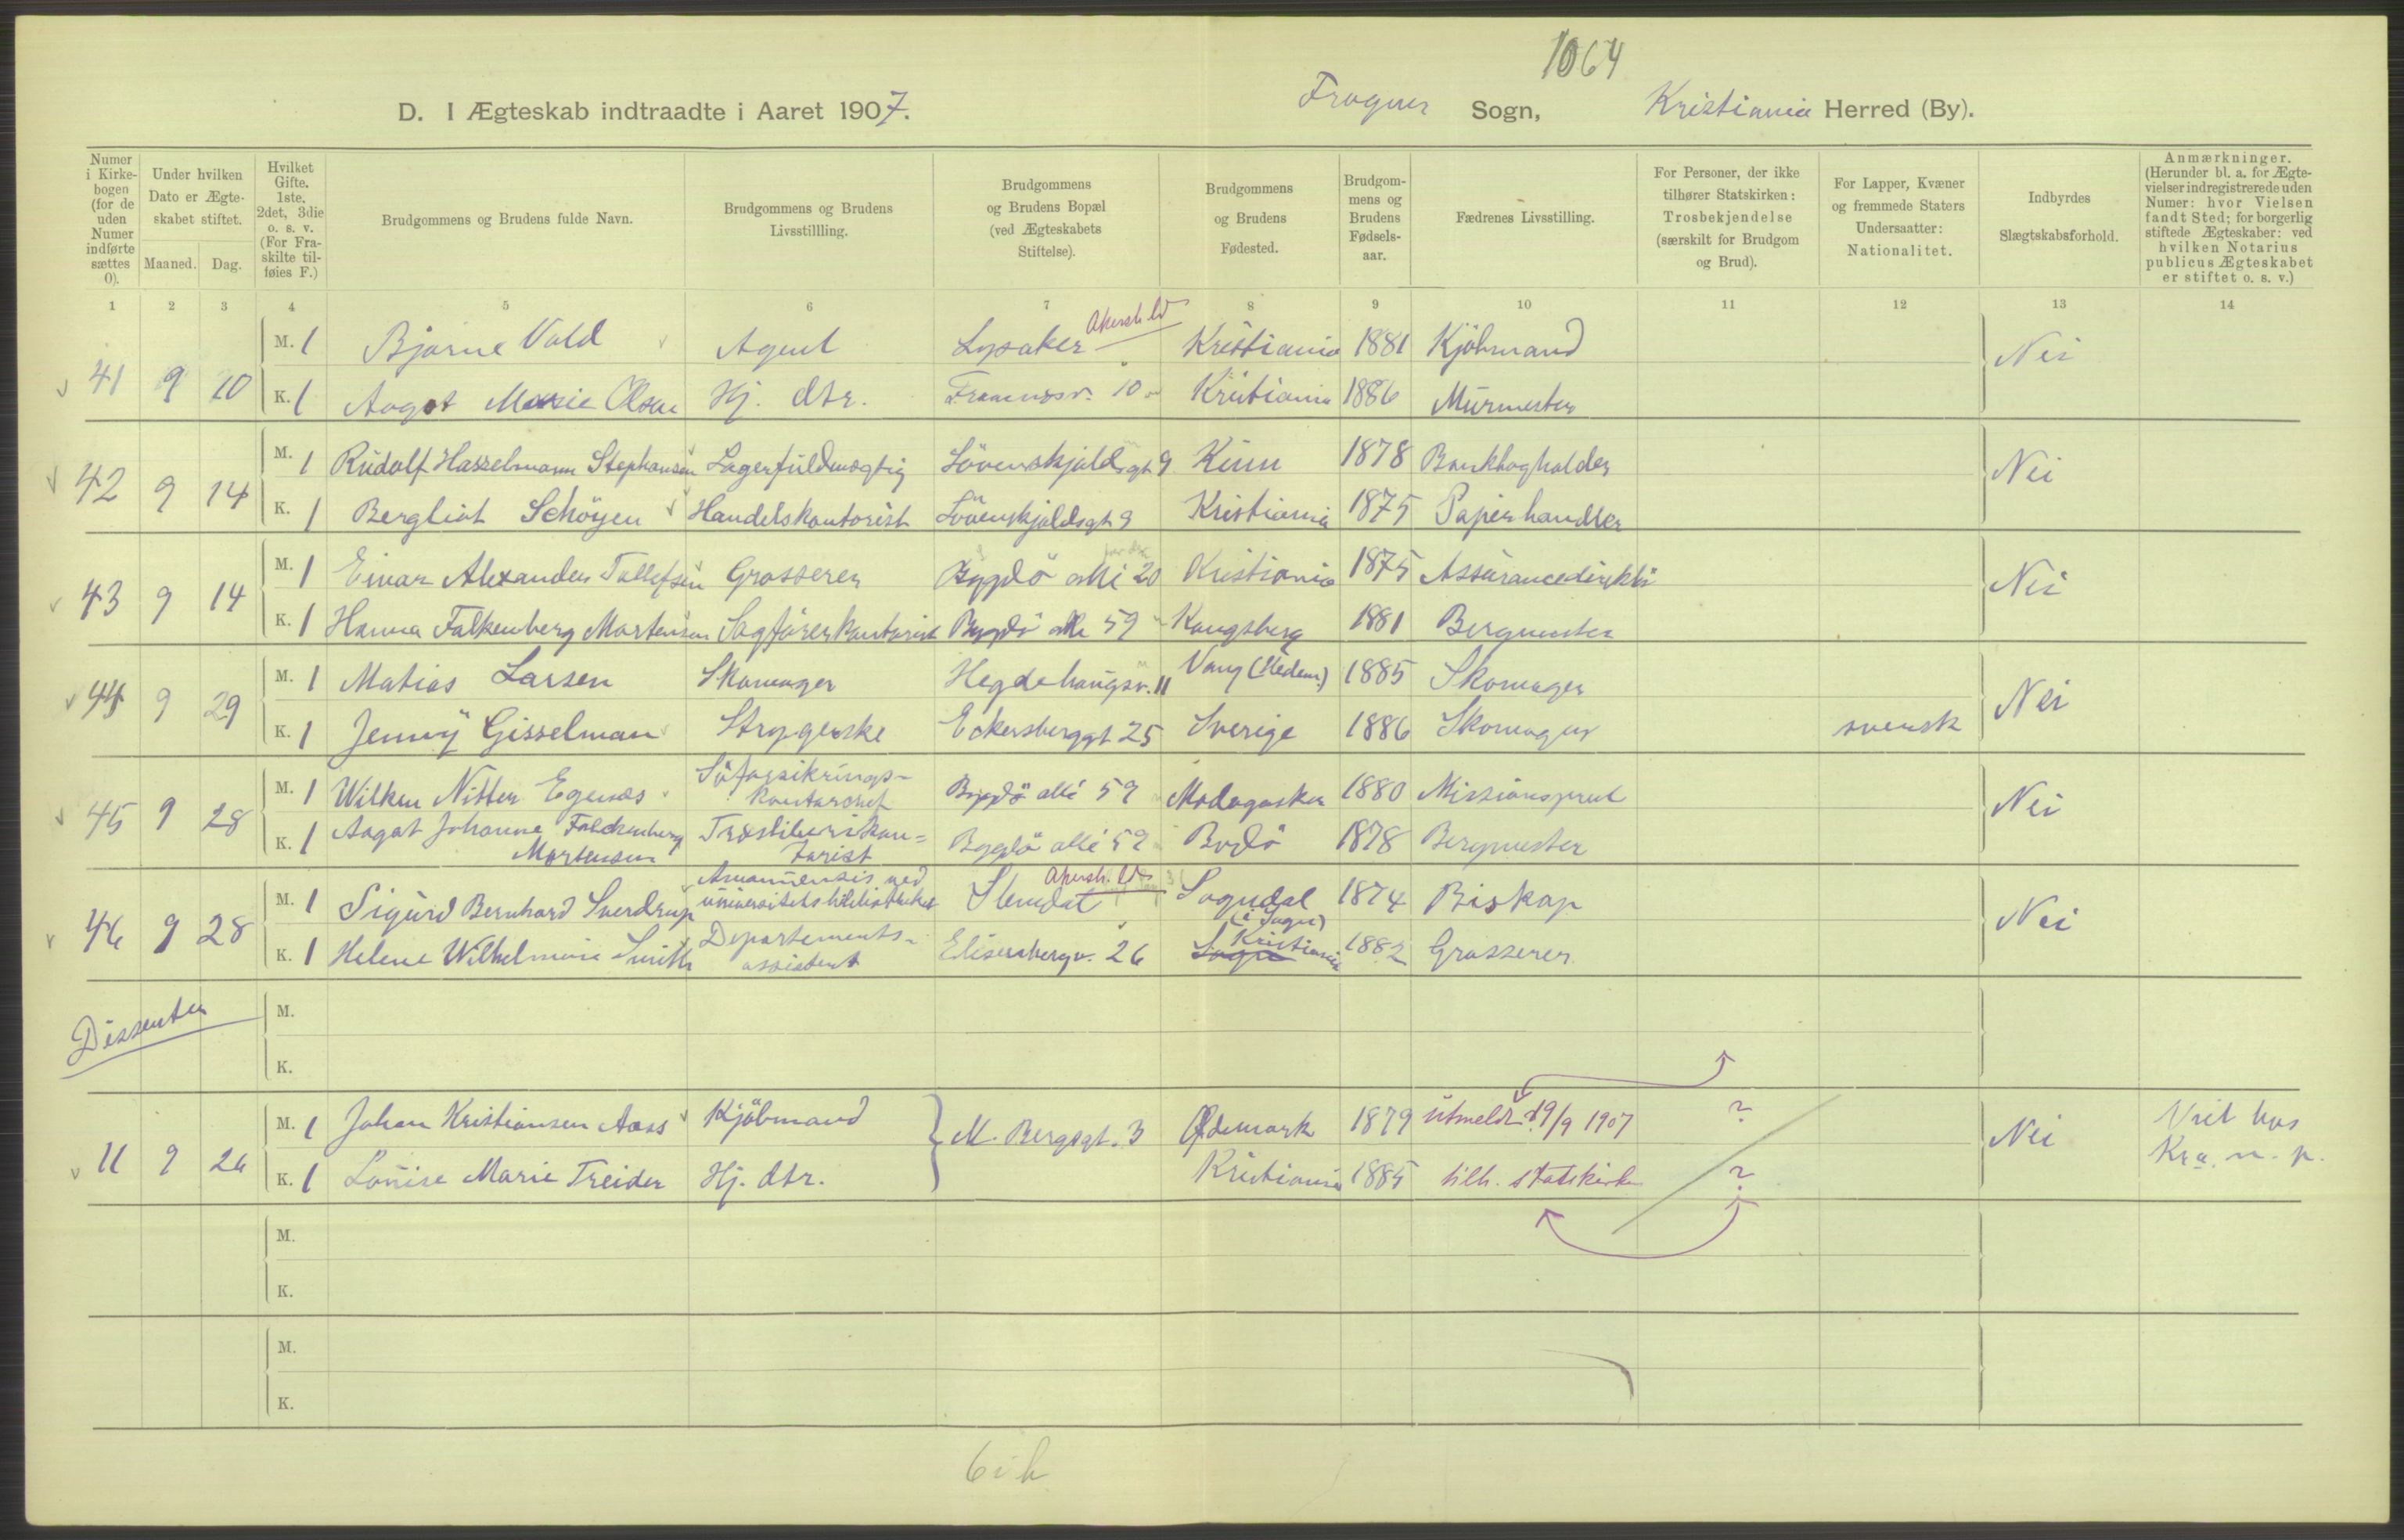 1064
D. I Ægteskab indtraadte i Aaret 1907. Frogner Sogn, Kristiania Herred (By).
Numer i Kirkebogen (for de uden Numer indførte sættes 0). | Under hvilken Dato er Ægteskabet stiftet. Maaned. Dag. | Hvilket Gifte. 1ste, 2det, 3die o. s. v. (For Fraskilte tilføies F.) | Brudgommens og Brudens fulde Navn. | Brudgommens og Brudens Livsstillling. | Brudgommens og Brudens Bopæl (ved Ægteskabets Stiftelse). | Brudgommens og Brudens Fødested. | Brudgommens og Brudens Fødselsaar. | Fædrenes Livsstilling. | For Personer, der ikke tilhører Statskirken: Trosbekjendelse (særskilt for Brudgom og Brud). | For Lapper, Kvæner og fremmede Staters Undersaatter: Nationalitet. | Indbyrdes Slægtskabsforhold. | Anmærkninger. (Herunder bl. a. for Ægtevielser indregistrerede uden Numer: hvor Vielsen fandt Sted; for borgerlig stiftede Ægteskaber: ved hvilken Notarius publicus Ægteskabet er stiftet o. s. v.)
1 2 3 4 5 6 7 8 9 10 11 12 13 14
M. 1 Bjarne Vold Agent Lysaker Akersh. Kristiania 1881 Kjöbmand
41 9 10 Nei
K. 1 Aagot Marie Olsen Hj. dtr. 10 Kristiania 1886 Murmester
M. 1 Rudolf Hasselmann Stephansen Lagerfuldmægtig Lövenskjoldsgt 9 Kinn 1878 Bankbogholder
42 9 14 Nei
K. 1 Bergliot Schöyen Handelskontorist Lövenskjoldsgt 9 Kristiania 1875 Papirhandler
M. 1 Einar Alexander Tollefsen Grosserer Bygdö allé 20 Kristiania 1875 Assurancedirektör
43 9 14 Nei
K. 1 Hanna Falkenberg Mortensen Sagförerkontorist Bygdö alle 59 Kongsberg 1881 Bergmester
M. 1 Matias Larsen Skomager Hegdehaugsv. 11 Vang (Hedem.) 1885 Skomager
44 9 29 Nei
K. 1 Jenny Gisselman Strygerske Eckersberggt 25 Sverige 1886 Skomager svensk
M. 1 Wilken Nitter Egenæs Söforsikrings-
kontorchef Bygdö allé 59 Madagaskar 1880 Missionsprest
45 9 28 Nei
K. 1 Aagot Johanne Falckenberg
Mortensen Bygdö allé 59 Bodö 1878 Bergmester
M. 1 Sigurd Bernhard Sverdrup Amanuensis ved
universitetsbibliotheket Slemdal Akersh. Sogndal
(i Sogn) 1874 Biskop
46 9 28 Nei
K. 1 Helene Wilhelmine Smith Departements-
assistent Elisenbergv. 26 Sogn Kristiania 1882 Grosserer
Dissenter
M.
K.
M. 1 Johan Kristiansen Aass Kjöbmand M. Bergsgt. 3 Ødemark 1879 utmeldt 19/9 1907 ?
11 9 26 Nei Viet hos
Kra. n. p.
K. 1 Louise Marie Treider Hj. dtr. Kristiania 1885 tilh. statskirken ?
M.
K.
M.
K.